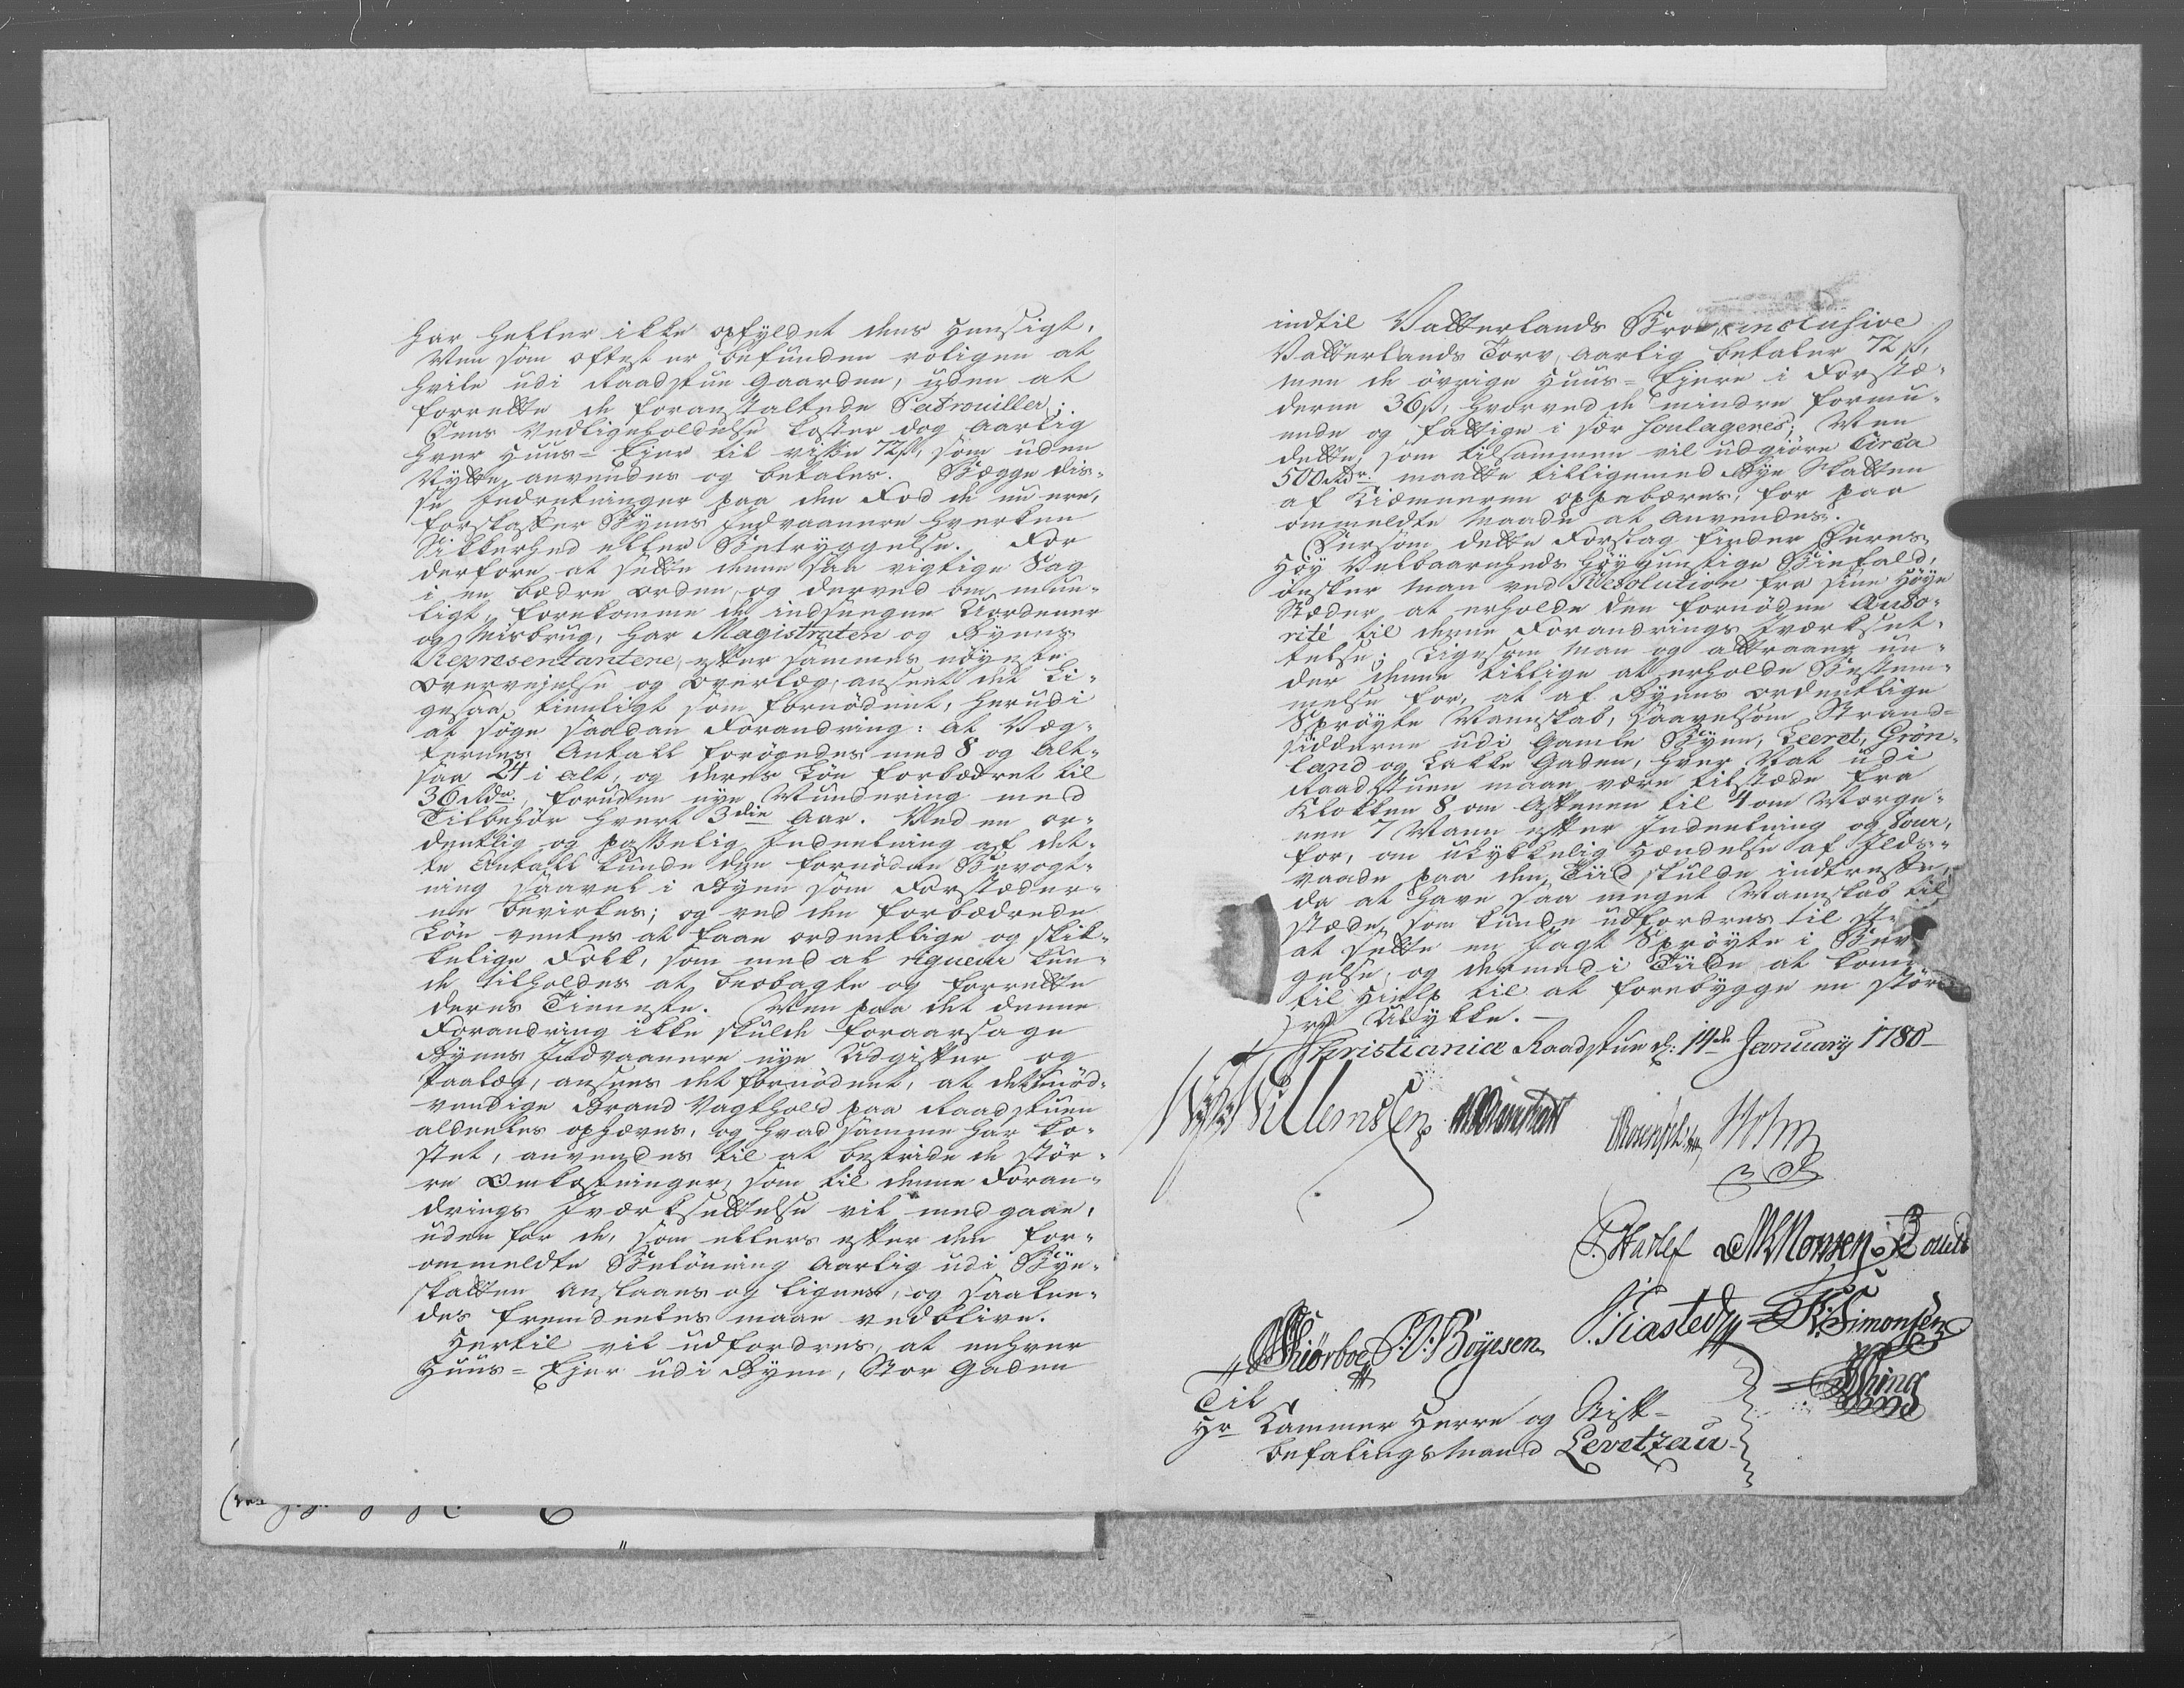 har heller ikke opfyldet dens Hensigt,
Men som oftest er befunden roligen at
hvile udi Raadstue Gaarden, uden at
forrette de foranstaltede Patrouiller;
Dens Vedligeholdelse koster dog aarlig
hver Huus-Ejer til visse 72 s, som uden
Nytte anvendes og betales. Begge dis-
se Indretninger paa den Fod de nu ere,
forskaffer Byens Indvaanere hverken
Sikkerhed eller Betryggelse. For
derfore at sette denne saa vigtige Sag
i en bædre orden, og derved om mue-
ligt, forekomme de indsnegne Uordener
og Misbrug, har Magistraten og Byens
Representantene, efter sammes nöyeste
Overvejelse og Overlæg, anseet det li-
gesaa tienligt som fornödent, herudi
at söge saadan Forandring: at Væg-
ternes Antall forögedes med 8 og Alt-
saa 24 i alt, og deres Lön forbædret til
36 Rdr., foruden nye Mundering med
Tilbehör hvert 3die Aar. Ved en or-
dentlig og passelig Indeeling af det-
te Antall kunde den fornödne Bevogt-
ning saavel i Byen som Forstæder-
ne bevirkes; og ved den forbædrede
Lön ventes at faae ordentlige og skik-
kelige Folk, som med al rigueur kun-
de tilholdes at beobagte og forrette
deres Tieneste. Men paa det denne
Forandring ikke skulde foraarsage
Byens Indvaanere nye Udgifter og
Paalæg, ansees det fornödent, at det unöd-
vendige Brand Vagthold paa Raadstuen
aldeeles ophæves, og hvad samme har ko-
stet, anvendes til at bestride de stör-
re Omkostninger, som til denne Foran-
drings Iværksættelse vil medgaae,
uden for de, som ellers efter den for-
ommeldte Belönning aarlig udi Bye-
skatten anslaaes og lignes, og saalee-
des fremdeeles maae vedblive.
Hertil vil udfordres, at enhver
Huus-Ejer udi Byen, Stor Gaden
indtil Vatterlands Broe, inclusive
Vatterlands Torv, aarlig betaler 72 s,
men de övrige Huus-Ejere i Forstæ-
derne 36 s, hvorved de mindre formu-
ende og fattige i sær soulageres; Men
dette, som tilsammen vil udgiöre Circa
500 Rdr. maatte tilligemed Bye Skatten
af Kiemneren oppebæres, for paa
ommeldte Maade at anvendes.
Dersom dette Forslag finder Deres
Höy Velbaarenheds höygunstige Biefald,
önsker man ved Resolution fra sine Höye
Stæder at erholde den fornödne Auto-
rité til denne Forandrings Iværkset-
telse; Ligesom man og attraaer un-
der denne tillige at erholde Bestem-
melse for, at af Byens ordentlige
Spröyte Mandskab, saavelsom Strand-
sidderne udi Gamle Byen, Leeret, Grön-
land og Lakke Gaden, hver Nat udi
Raadstuen maae være tilstæde fra
Klokken 8 om Aftenen til 4 om Morge-
nen 7 Mann efter Indeelning og Tour,
for, om ulykkelig Hændelse af Ilds-
vaade paa den Tiid skulde indtreffe,
da at have saa meget Mandskab til
stæde, som kunde udfordres til st
at sette en Jagt Spröyte i Bev
gelse, og dermed i Tiide at kom
til Hielp til at forebygge en stör
re Ulykke.
Christiania Raadstue d: 14de January 1780
Willemssen
Holm
MMonsen
Kiörboe P: P: Böyesen J. Fiasted K: Simonsen
Til
Hr. Kammer Herre og Stift-
befalingsMand Levetzau